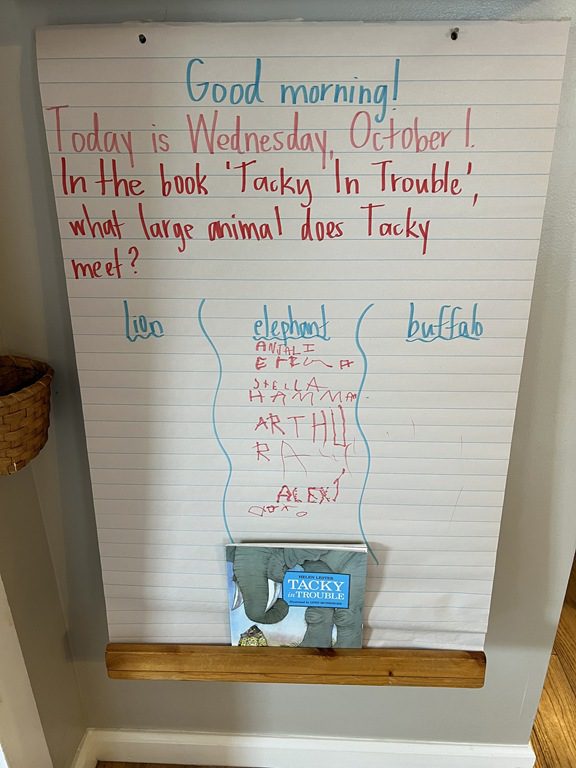 Good morning!
Today is Wednesday, October 1.
In the book 'Tacky In Trouble',
what large animal does Tacky
meet?
lion elephant buffalo
ANJALI
STELLA
ARTHU
R
ALEX
HELEN LESTER
TACKY
in TROUBLE